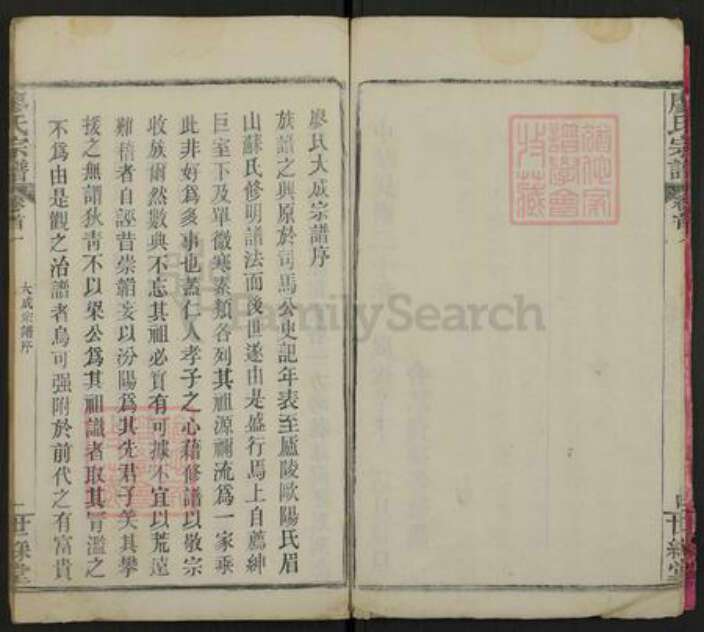 廖氏宗譜
卷首一
世綵堂
猶他家
譜學會
珍藏
FamilySearch
廖氏大成宗譜序
族譜之興原於司馬公史記年表至廬陵歐陽氏眉
山蘇氏修明譜法而後世遂由是盛行焉上自薦紳
巨室下及單微寒素類各列其祖源禰流爲一家乘
此非好爲多事也蓋仁人孝子之心藉修譜以敬宗
收族爾然數典不忘其祖必實有可據不宜以荒遠
難稽者自誣昔崇韜妄以汾陽爲其先君子笑其攀
援之無謂狄青不以梁公爲其祖識者取其冐濫之
不爲由是觀之治譜者烏可强附於前代之有富貴
廖氏宗譜
卷首一
大成宗譜序
一
世綵堂